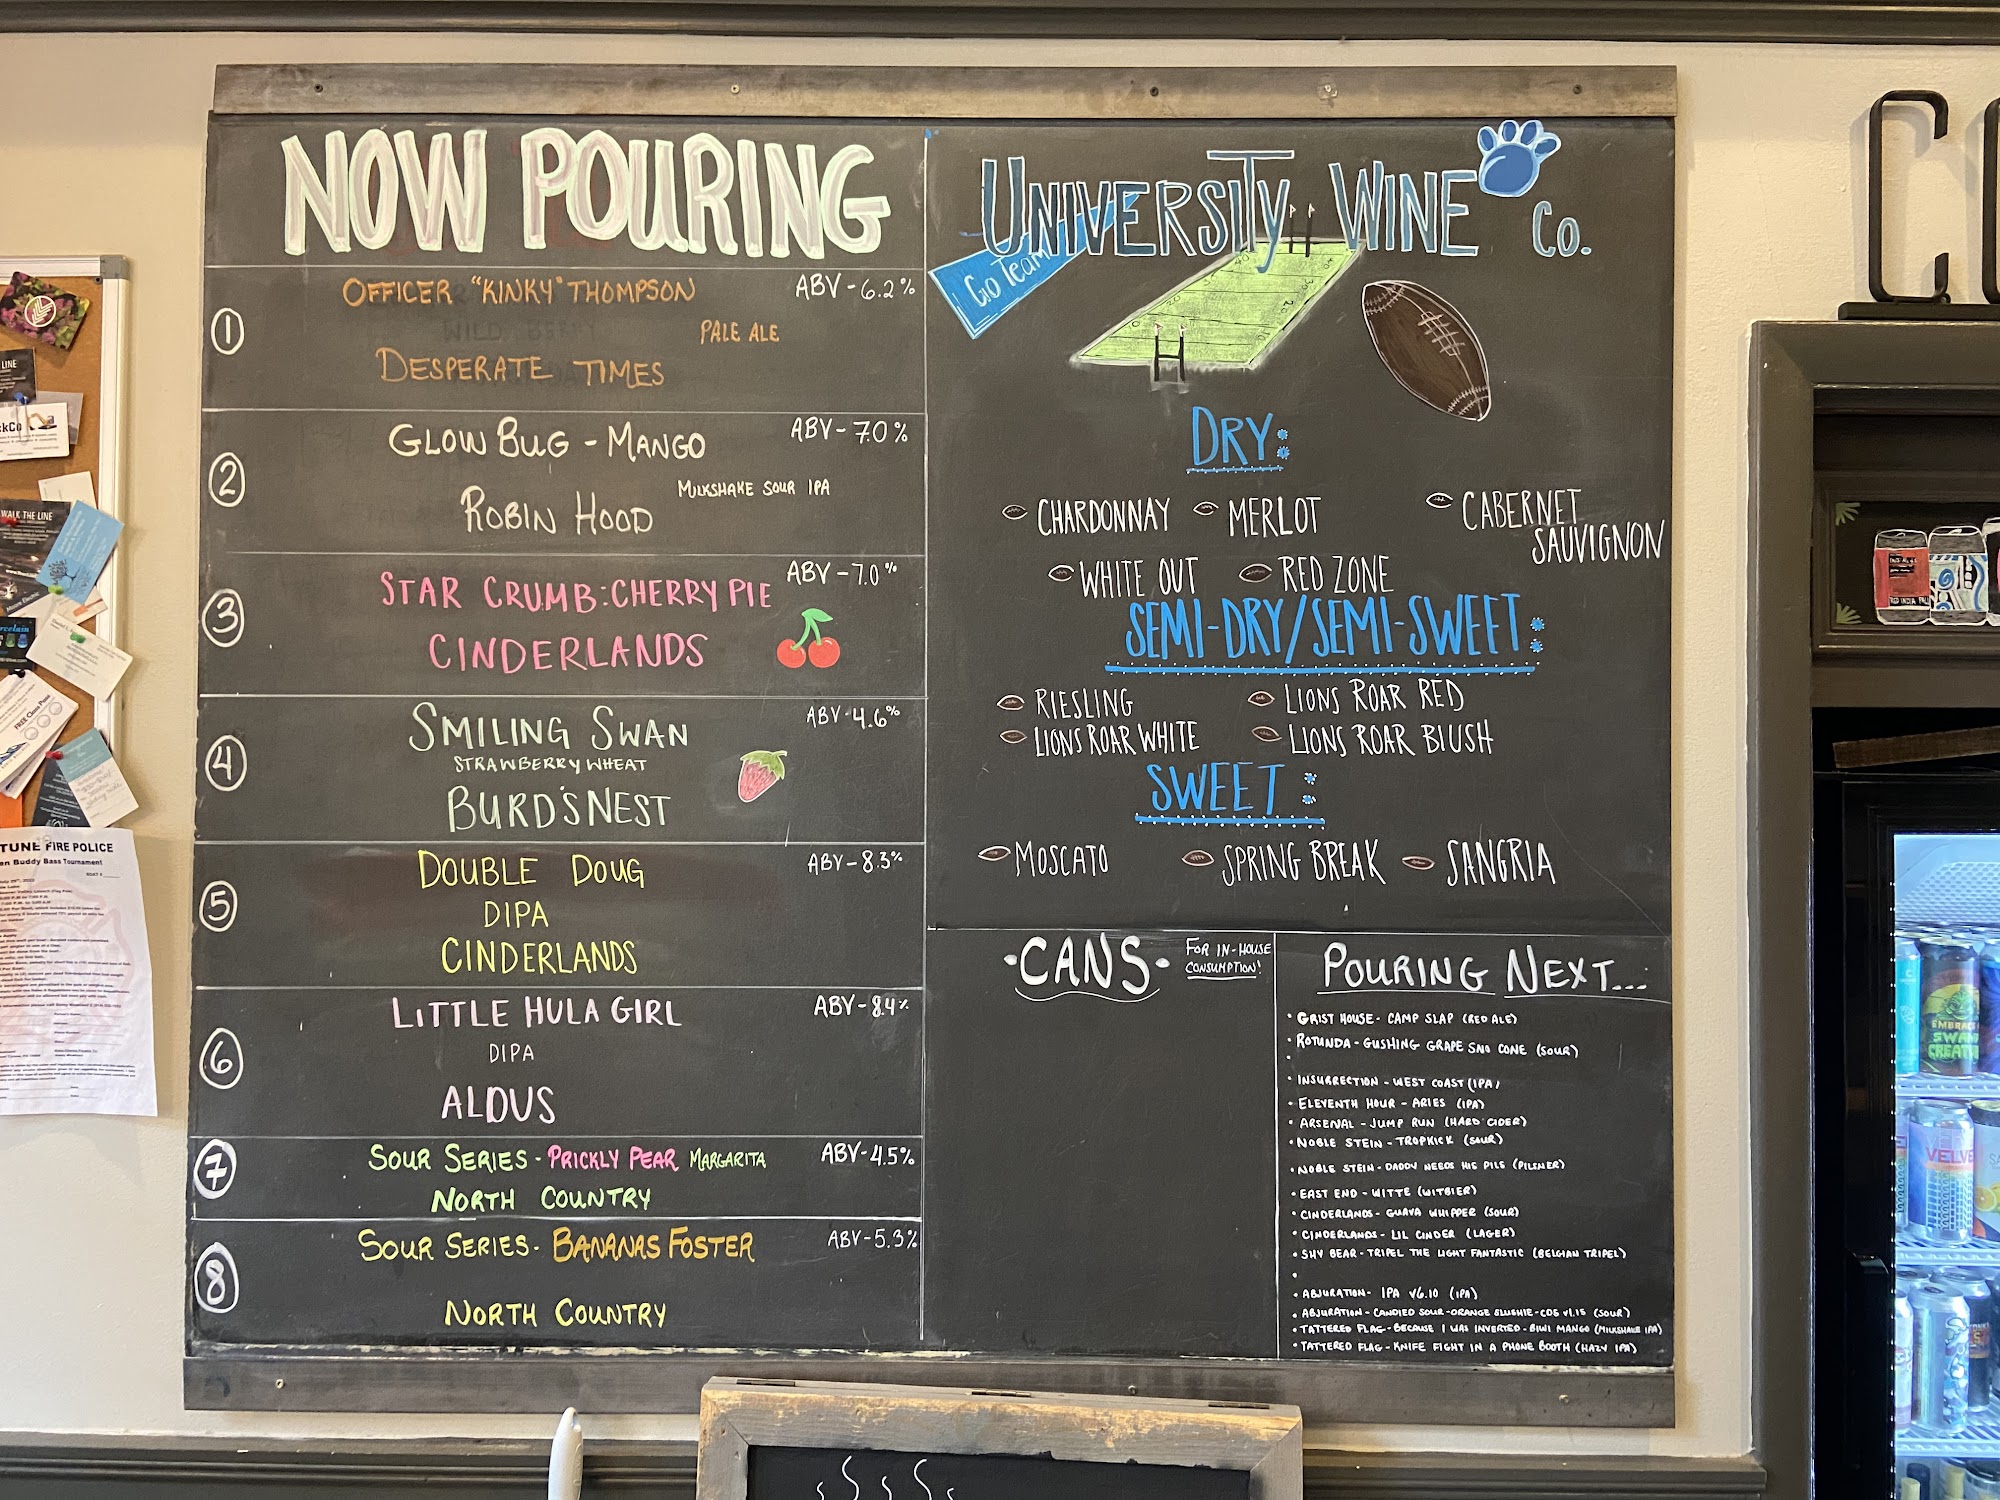 NOW POURING
1
OFFICER "KINKY" THOMPSON
ABV-6.2%
PALE ALE
DESPERATE TIMES
2
GLOW BUG - MANGO
ABV-7.0%
MILKSHAKE SOUR IPA
ROBIN HOOD
3
STAR CRUMB: CHERRY PIE
ABV-7.0%
CINDERLANDS
4
SMILING SWAN
ABV-4.6%
STRAWBERRY WHEAT
BURD'S NEST
5
DOUBLE DOUG
ABV-8.3%
DIPA
CINDERLANDS
6
LITTLE HULA GIRL
ABV-8.4%
DIPA
ALDUS
7
SOUR SERIES - PRICKLY PEAR MARGARITA
ABV-4.5%
NORTH COUNTRY
8
SOUR SERIES - BANANAS FOSTER
ABV-5.3%
NORTH COUNTRY
UNIVERSITY WINE Co.
Go Team
DRY:
CHARDONNAY MERLOT CABERNET
SAUVIGNON
WHITE OUT RED ZONE
SEMI-DRY/SEMI-SWEET:
RIESLING LIONS ROAR RED
LIONS ROAR WHITE LIONS ROAR BLUSH
SWEET:
MOSCATO SPRING BREAK SANGRIA
·CANS·
FOR IN-HOUSE
CONSUMPTION!
POURING NEXT...
• GRIST HOUSE - CAMP SLAP (RED ALE)
• ROTUNDA - GUSHING GRAPE SNO CONE (SOUR)
• INSURRECTION - WEST COAST (IPA)
• ELEVENTH HOUR - ARIES (IPA)
• ARSENAL - JUMP RUN (HARD CIDER)
• NOBLE STEIN - TROPKICK (SOUR)
• NOBLE STEIN - DADDY NEEDS HIS PILS (PILSNER)
• EAST END - WITTE (WITBIER)
• CINDERLANDS - GUAVA WHIPPER (SOUR)
• CINDERLANDS - LIL CINDER (LAGER)
• SHY BEAR - TRIPEL THE LIGHT FANTASTIC (BELGIAN TRIPEL)
• ABJURATION - IPA V6.10 (IPA)
• ABJURATION - CANDIED SOUR - ORANGE SLUSHIE - CDS V1.15 (SOUR)
• TATTERED FLAG - BECAUSE I WAS INVERTED - BIWI MANGO (MILKSHAKE IPA)
• TATTERED FLAG - KNIFE FIGHT IN A PHONE BOOTH (HAZY IPA)
WALK THE LINE
FREE Class Pass
TUNE FIRE POLICE
en Buddy Bass Tournament
EMBRACE
SWAN
CREATE
VELVE